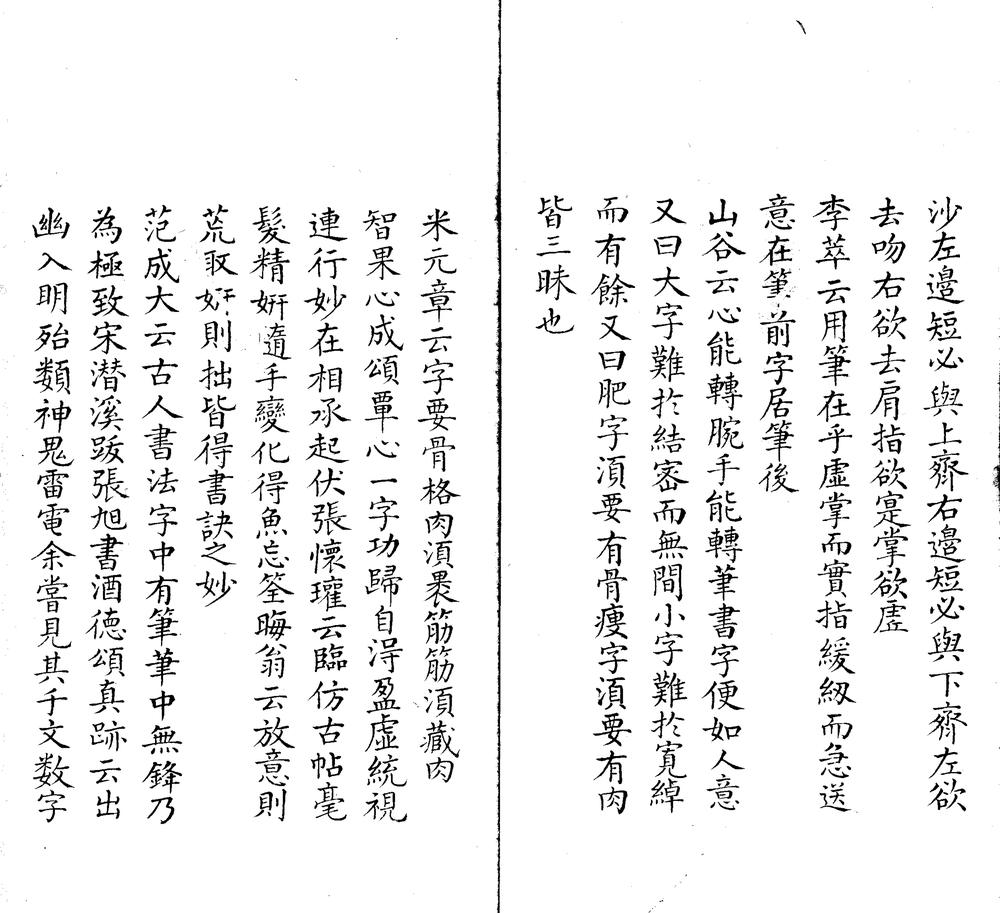 沙左邉短必與上齊右邉短必與下齊左欲
去吻右欲去肩指欲寔掌欲虗
李萃云用筆在乎虛掌而實指緩紉而急送
意在筆前字居筆後
山谷云心能轉腕手能轉筆書字便如人意
又曰大字難於結宻而無間小字難於寛綽
而有餘又曰肥字湏要有骨痩字湏要有肉
皆三昧也
米元章云字要骨格肉湏褁筋筋湏藏肉
智果心成頌覃心一字功歸自得盈虛統視
連行妙在相承起伏張懷瓘云臨仿古帖毫
髮精妍隨手變化得魚忘筌晦翁云放意則
荒取妍則拙皆得書訣之妙
范成大云古人書法字中有筆筆中無鋒乃
為極致宋潜溪䟦張旭書酒德頌真跡云出
幽入明殆類神鬼雷電余嘗見其千文数字